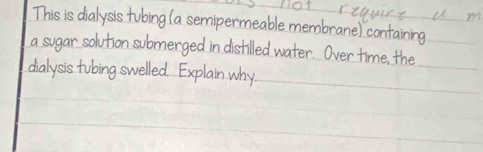 not require a m
This is dialysis tubing (a semipermeable membrane) containing
a sugar solution submerged in distilled water. Over time, the
dialysis tubing swelled. Explain why.